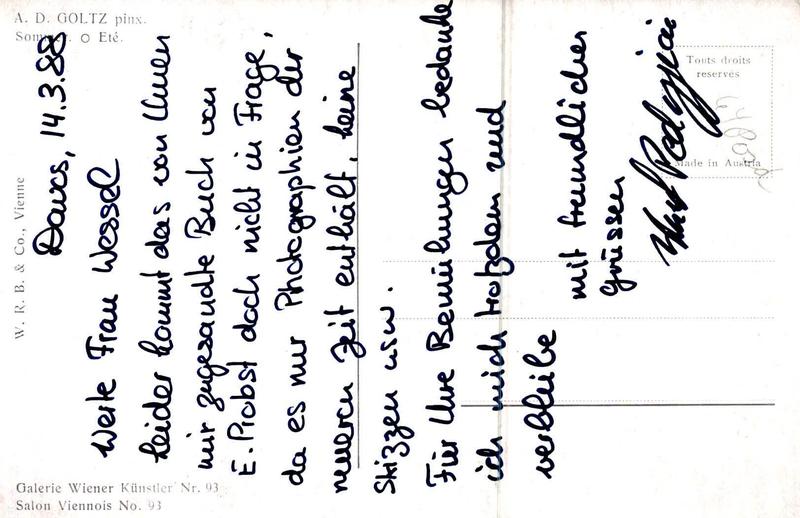 A. D. GOLTZ pinx.
Sommer. Eté.
W. R. B. & Co., Vienne
Galerie Wiener Künstler Nr. 93
Salon Viennois No. 93
Touts droits
reservés
Made in Austria
Davos, 14.3.88
Werte Frau Wessel
leider kommt das von Ihnen
mir zugesandte Buch von
E. Probst doch nicht in Frage,
da es nur Photographien der
neueren Zeit enthält, keine
Skizzen usw.
Für Ihre Bemühungen bedanke
ich mich trotzdem und
verbleibe
mit freundlichen
Grüssen